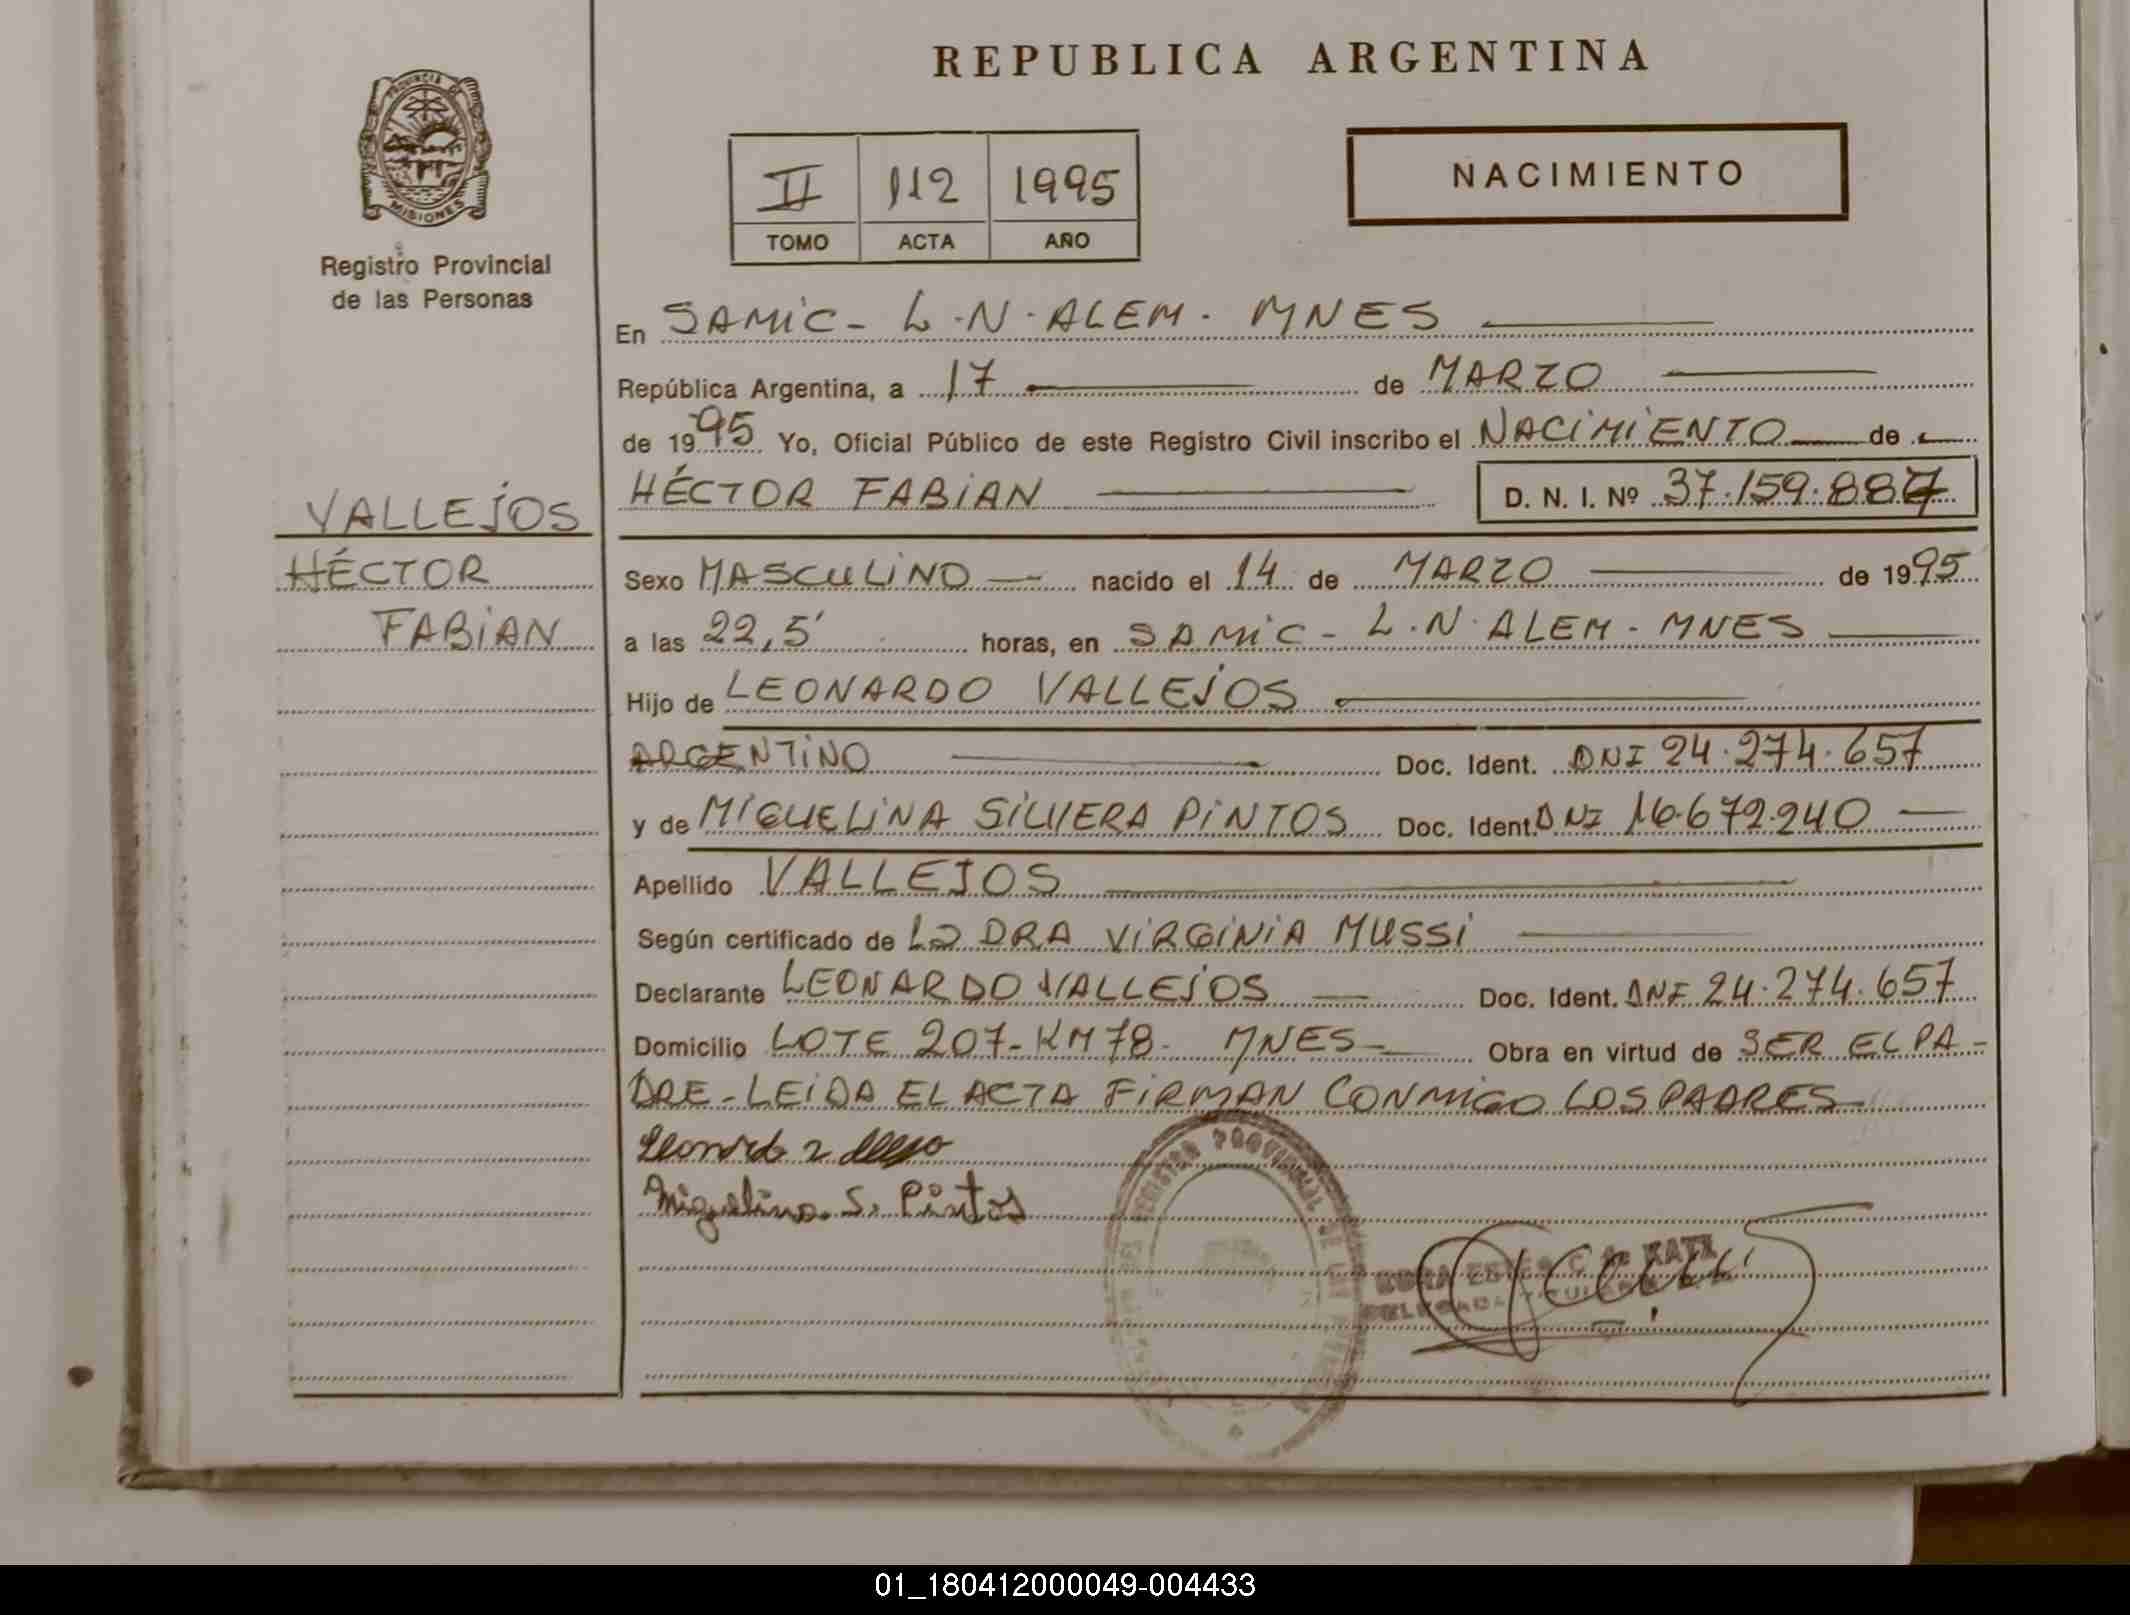 REPUBLICA ARGENTINA
PROVINCIA DE
MISIONES
Registro Provincial
de las Personas
II 112 1995
TOMO ACTA AÑO
NACIMIENTO
En SAMIC - L.N. ALEM. MNES
República Argentina, a 17 de MARZO
de 1995 Yo, Oficial Público de este Registro Civil inscribo el NACIMIENTO de
HÉCTOR FABIAN D. N. I. Nº 37.159.887
VALLEJOS
HÉCTOR
FABIAN
Sexo MASCULINO nacido el 14 de MARZO de 1995
a las 22,5' horas, en SAMIC - L.N. ALEM - MNES
Hijo de LEONARDO VALLEJOS
ARGENTINO Doc. Ident. DNI 24.274.657
y de MIGUELINA SILVERA PINTOS Doc. Ident. DNI 16.672.240
Apellido VALLEJOS
Según certificado de La DRA VIRGINIA MUSSI
Declarante LEONARDO VALLEJOS Doc. Ident. DNI 24.274.657
Domicilio LOTE 207 - KM 78 - MNES - Obra en virtud de SER EL PA-
DRE - LEIDA EL ACTA FIRMAN CONMIGO LOS PADRES
Miguelina S. Pintos
REGISTRO PROVINCIAL DE LAS
DELEGADA TITULAR
01_180412000049-004433